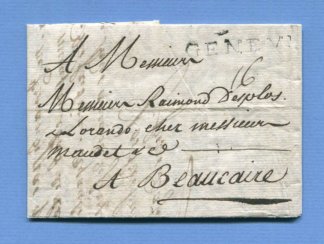 GENEV
A Messieurs
16
Messieurs Raimond Desplos
& Lorando chez messieurs
maudet & Ce
A Beaucaire